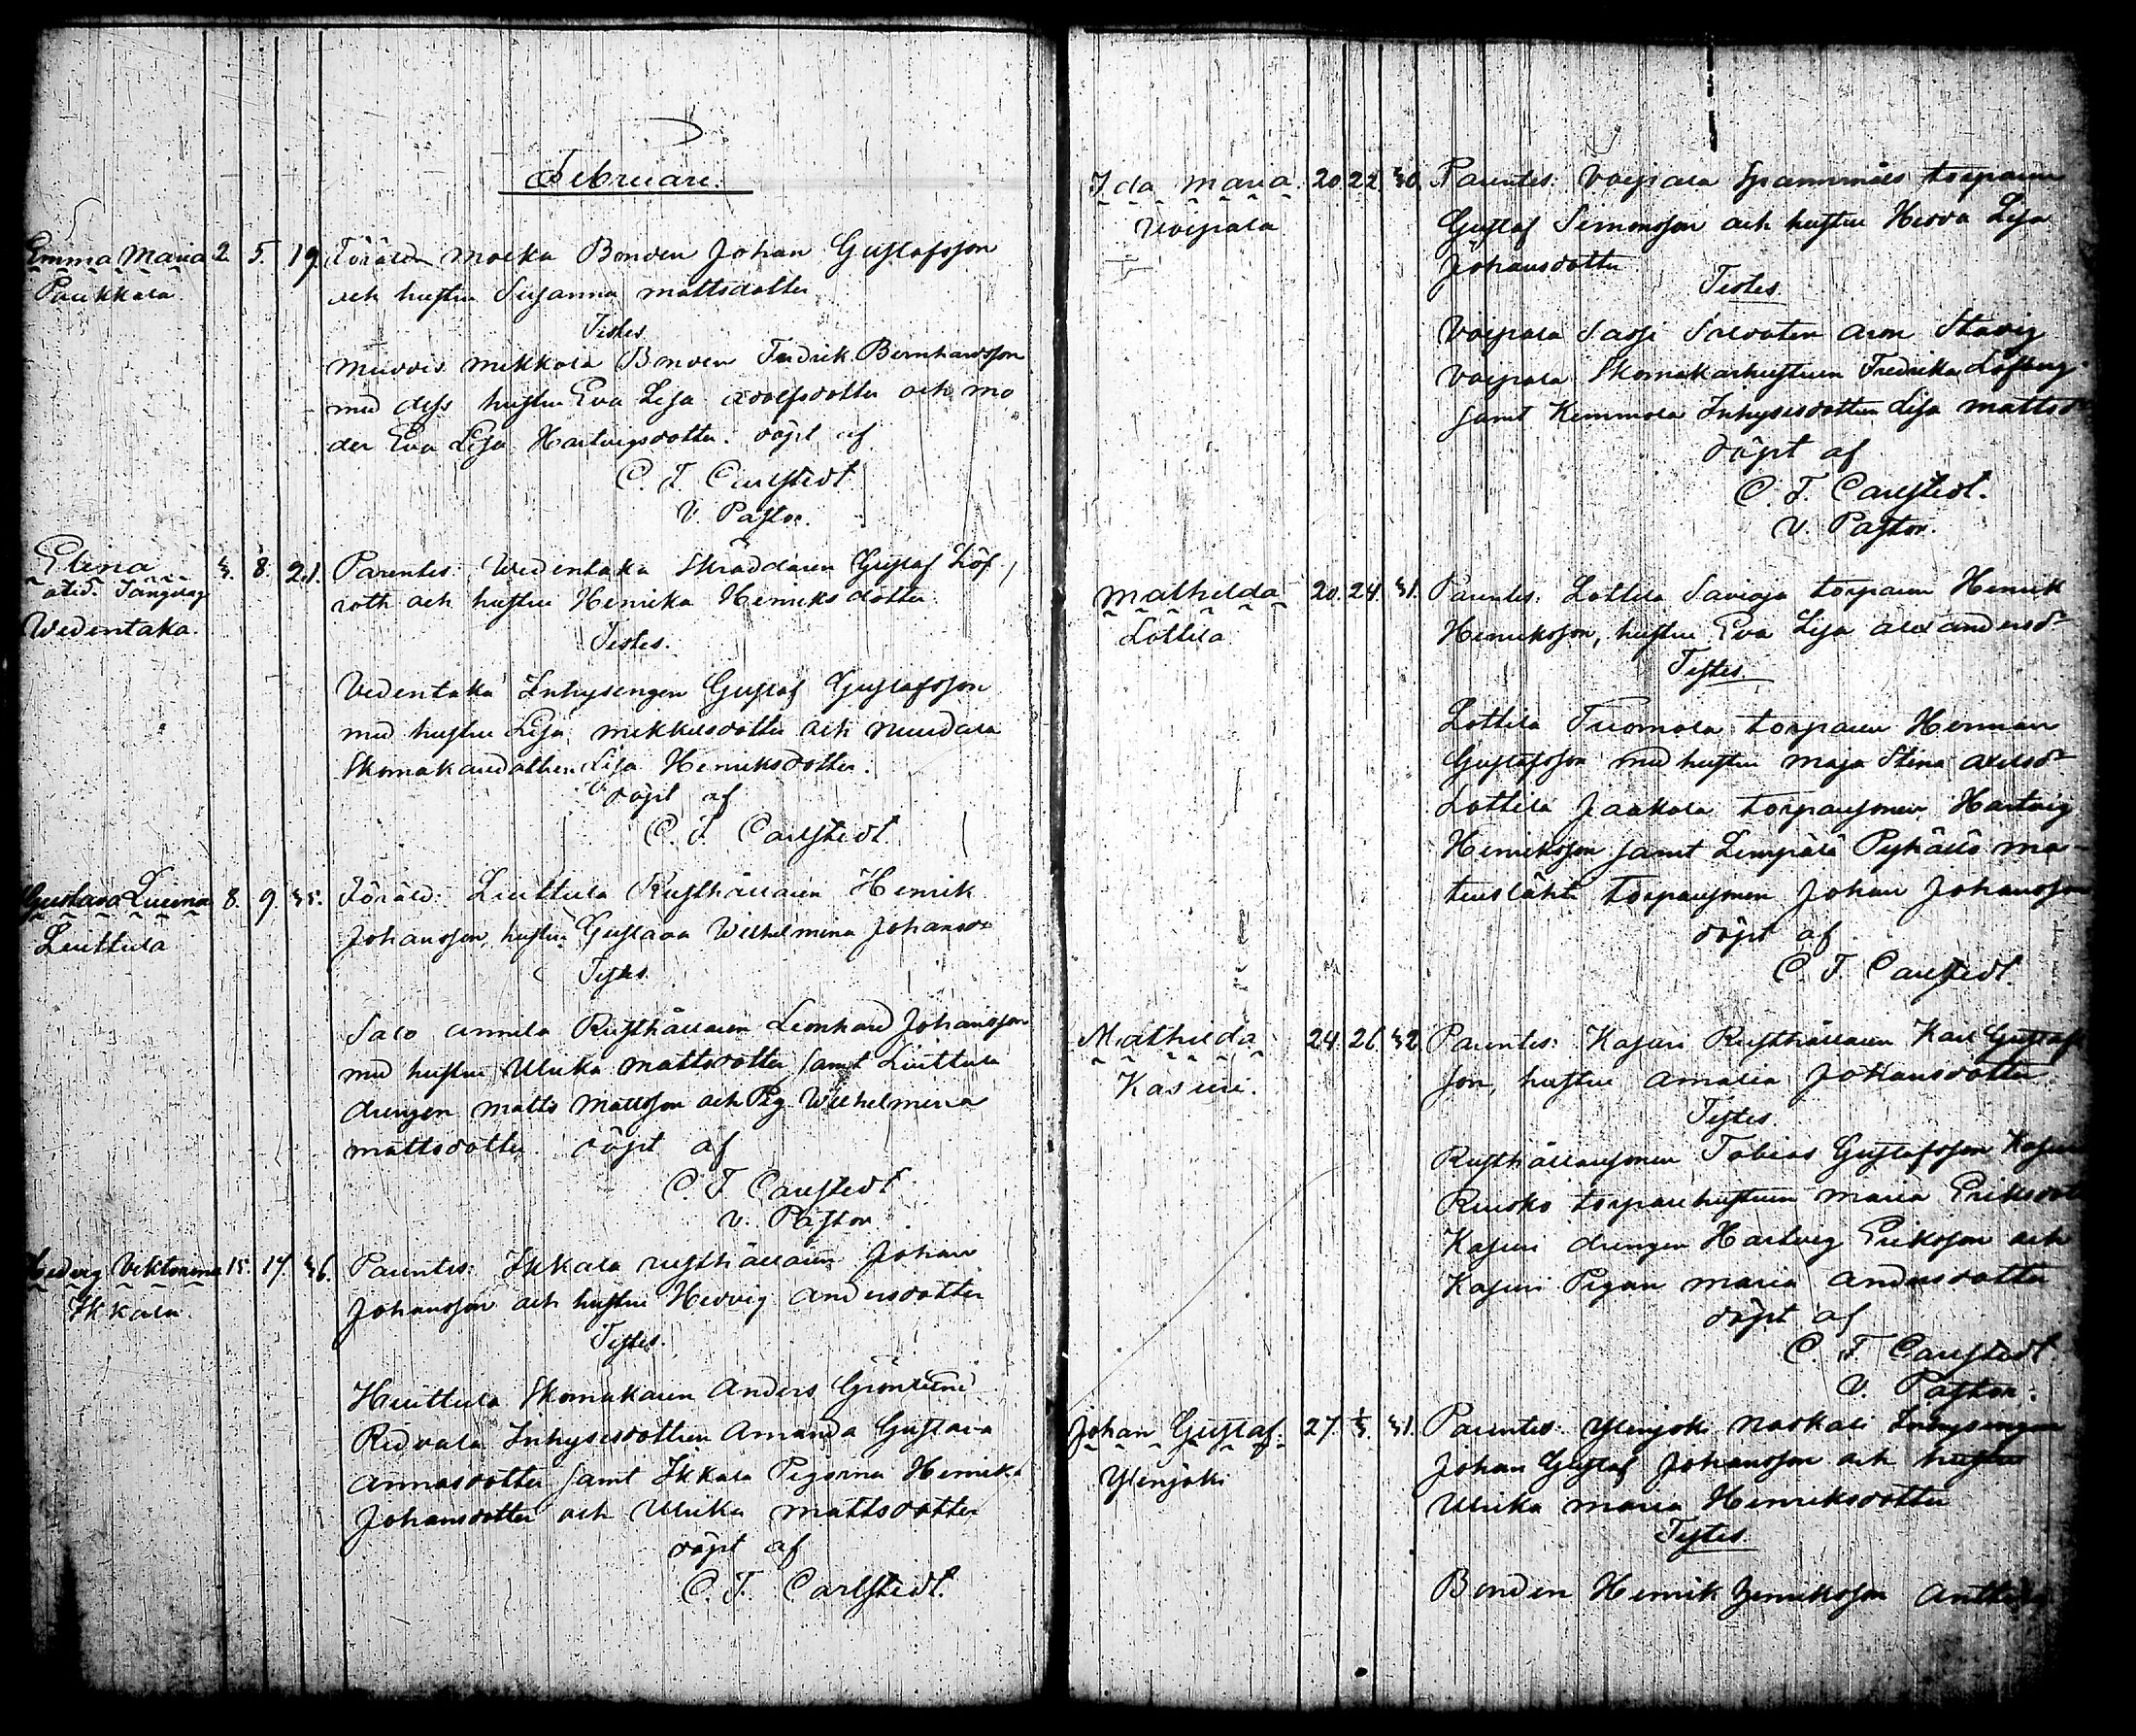 Februari.
Emma Maria 2. 5. 19. Föräld. Bonden Johan Gustafsson
Paukkala. och hustru Susanna Mattsdotter
Testes.
Mikkola Bonden Fredrik Bernhardsson
med dess hustru Eva Lisa Adolfsdotter och mo
der Eva Lisa Hartvigsdotter. döpt af
C. F. Carlstedt.
V. Pastor.
Elina 8. 21. Parentes: Wedentaka Skräddaren Gustaf Löf
roth och hustru Henrika Henriksdotter.
Wedentaka. Testes.
Vedentaka Inhysingen Gustaf Gustafsson
med hustru Lisa Mikkelsdotter och
Skomakaredottren Lisa Henriksdotter.
döpt af
C. F. Carlstedt.
Gustava 8. 9. 25. Föräld: Liuttula Rusthållaren Henrik
Liuttula Johansson, hustru Gustava Wilhelmina Johansd:r
Testes.
Salo Annila Rusthållaren Leonhard Johansson
med hustru Ulrika Mattsdotter samt Liuttula
drengen Matts Mattsson och Pig. Wilhelmina
Mattsdotter. döpt af
C. F. Carlstedt
V. Pastor
Hedvig Viktorina 15. 17. 26. Parentes: Ikkala rusthållaren Johan
Ikkala. Johansson och hustru Hedvig Andersdotter
Testes.
Huittula Skomakaren Anders Grönlund
Ridvala Inhysesdottren Amanda Gustava
Annasdotter samt Ikkala Pigorna Henrika
Johansdotter och Ulrika Mattsdotter
döpt af
C. F. Carlstedt.
Ida Maria 20. 22. 30. Parentes: Voipala torparen
Voipala Gustaf Simonsson och hustru Hedda Lisa
Johansdotter
Testes.
Voipala Sassi Soldaten Aron Stadig
Voipala Skomakarhustrun Fredrika Löfberg
samt Kemmola Inhysesdottren Lisa Mattsd:r
döpt af
C. F. Carlstedt.
V. Pastor.
Mathilda 20. 24. 31. Parentes: Lottila Savioja torparen Henrik
Lottila Henriksson, hustru Eva Lisa Alexandersd:r
Testes.
Lottila Tuomola torparen Herman
Gustafsson med hustru Maja Stina Axelsd:r
Lottila Jaakola torparsonen Hartvig
Henriksson samt Lempälä
torparsonen Johan Johansson
döpt af
C. F. Carlstedt.
Mathilda 24. 26. 32. Parentes: Kasuri Rusthållaren Karl Gustafs
Kasuri. son, hustru Amalia Johansdotter.
Testes.
Rusthållarsonen Tobias Gustafsson Kasuri
Ruosko torparehustrun Maria Eriksdot
Kasuri drengen Hartvig Eriksson och
Kasuri Pigan Maria Andersdotter
döpt af
C. F. Carlstedt.
V. Pastor.
Johan Gustaf. 27. Parentes: Ylenjoki Inhysingen
Ylenjoki Johan Gustaf Johansson och hustru
Ulrika Maria Henriksdotter
Testes.
Bonden Henrik Henriksson